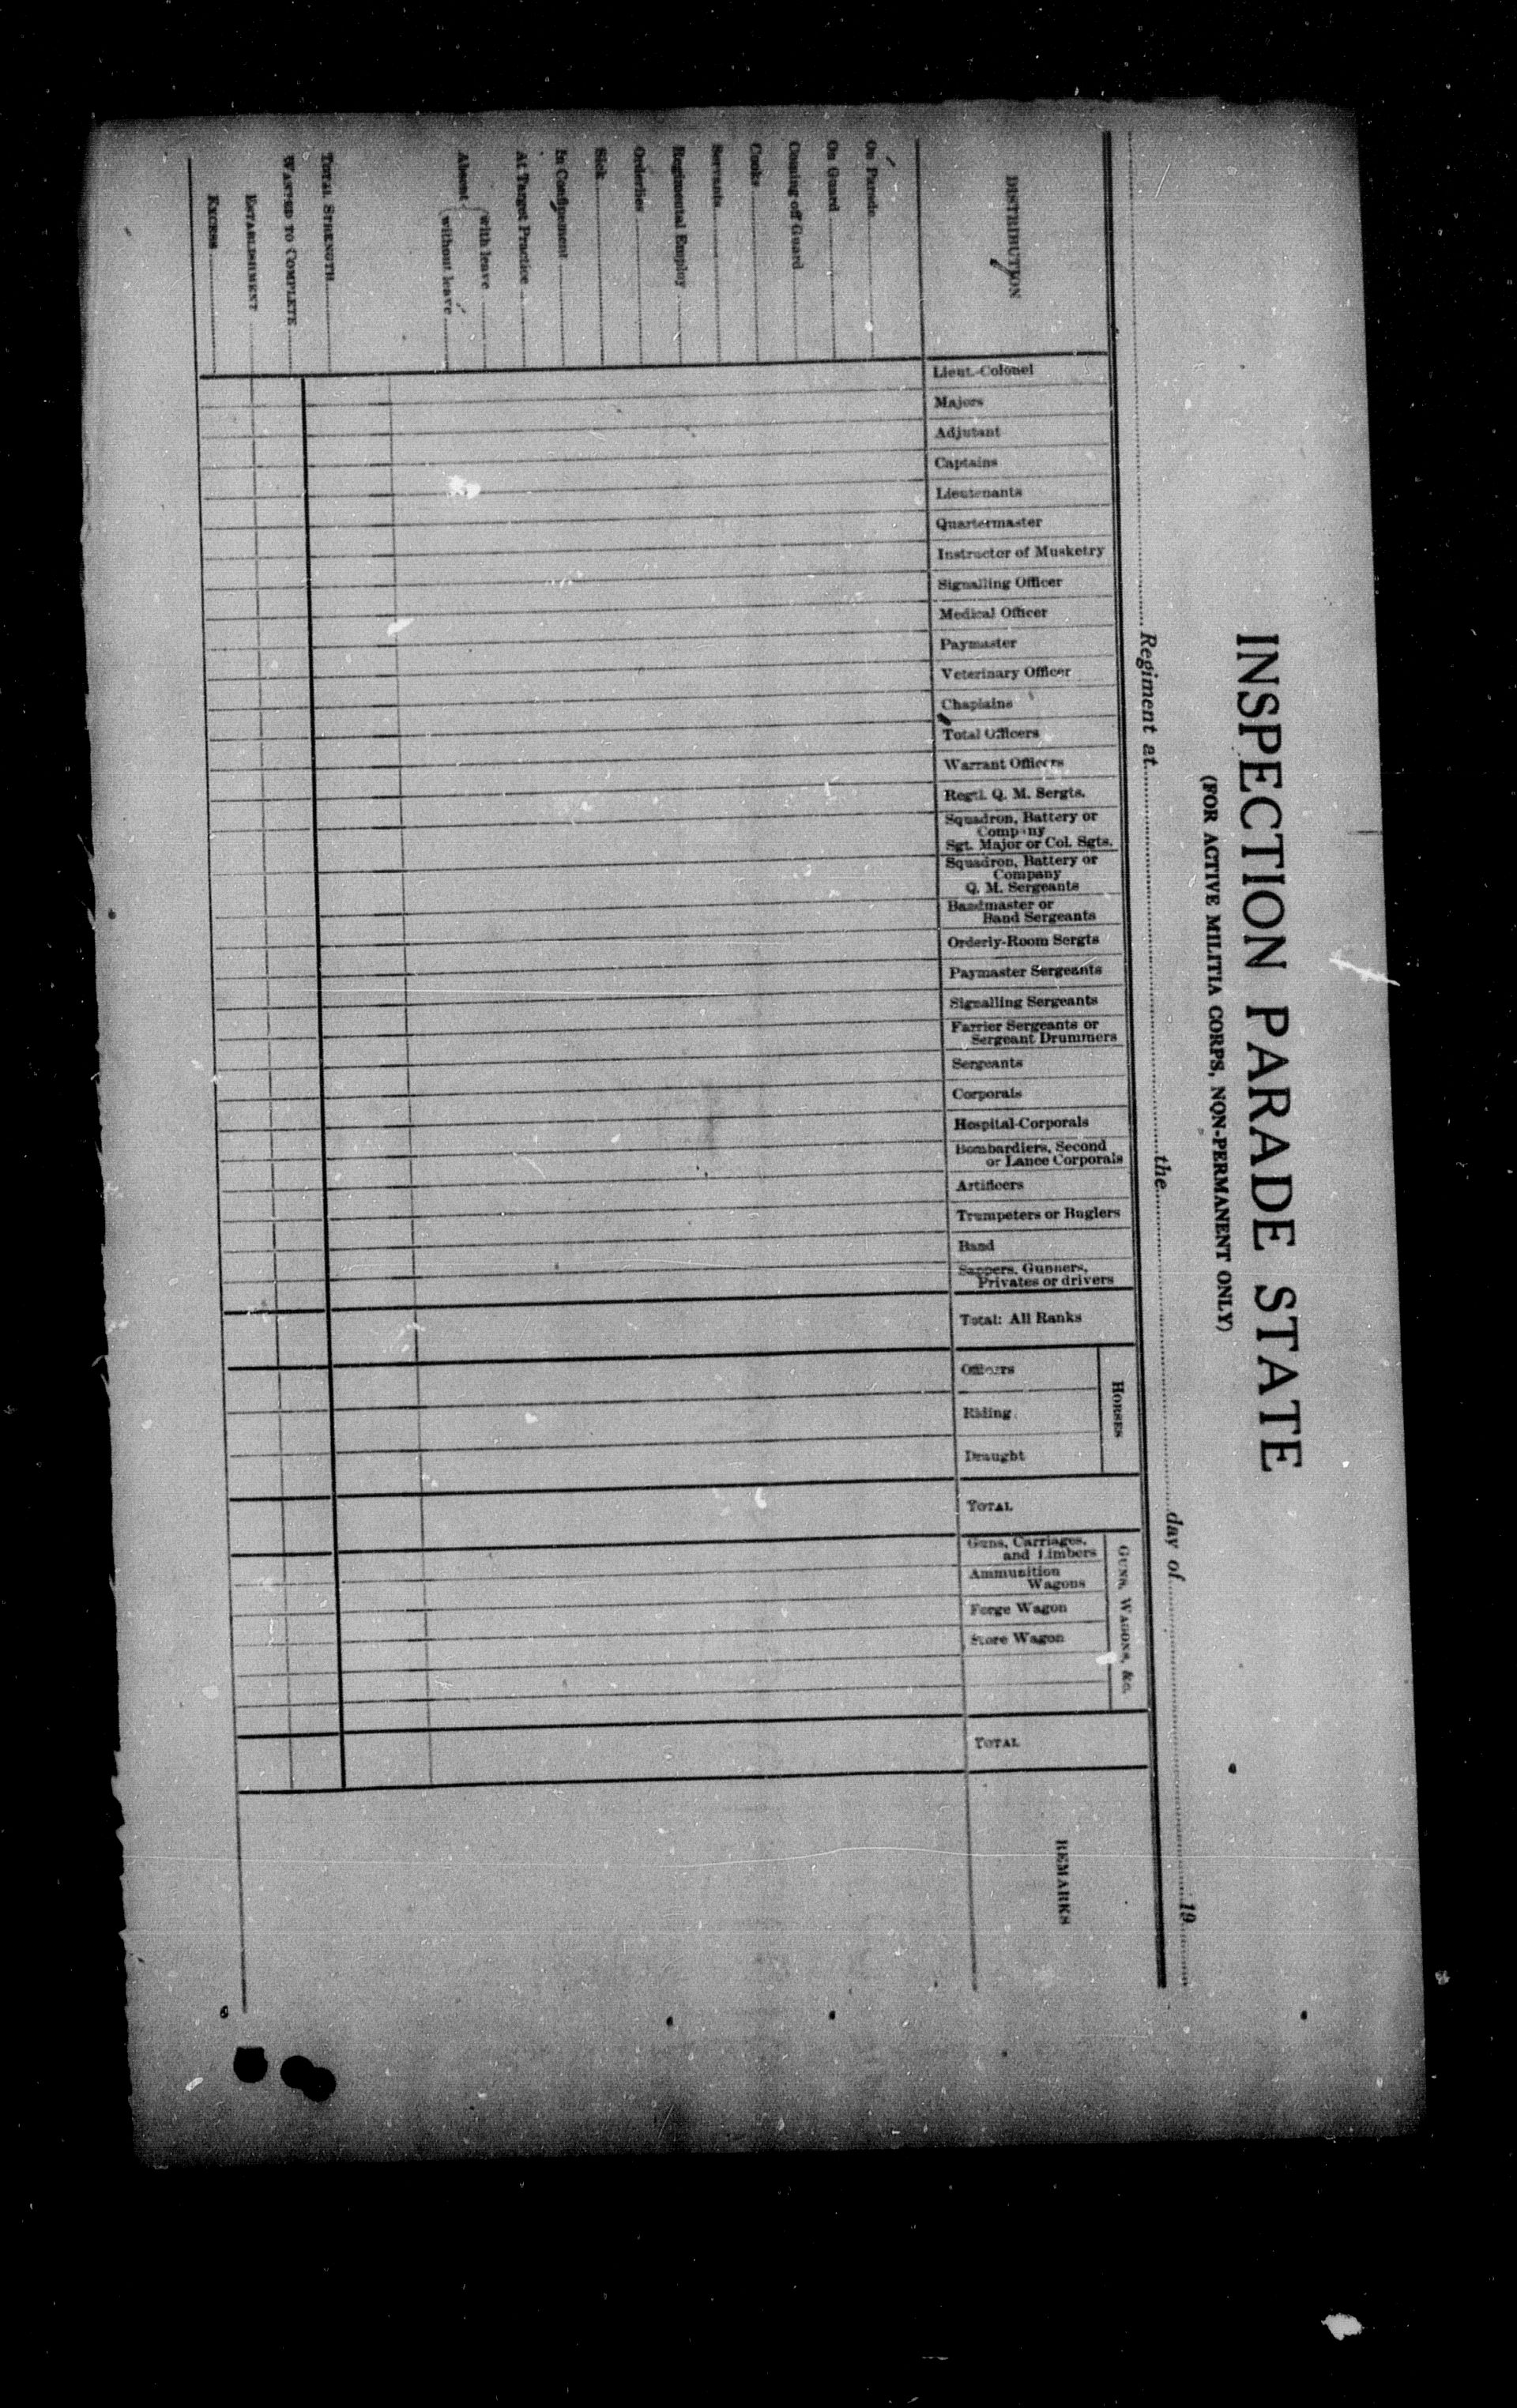 INSPECTION PARADE STATE
(FOR ACTIVE MILITIA CORPS, NON-PERMANENT ONLY)
Regiment at the day of 19
DISTRIBUTION
Lieut.-Colonel
Majors
Adjutant
Captains
Lieutenants
Quartermaster
Instructor of Musketry
Signalling Officer
Medical Officer
Paymaster
Veterinary Officer
Chaplains
Total Officers
Warrant Officers
Regtl. Q. M. Sergts.
Squadron, Battery or
Company
Sgt. Major or Col. Sgts.
Squadron, Battery or
Company
Q. M. Sergeants
Bandmaster or
Band Sergeants
Orderly-Room Sergts
Paymaster Sergeants
Signalling Sergeants
Farrier Sergeants or
Sergeant Drummers
Sergeants
Corporals
Hospital-Corporals
Bombardiers, Second
or Lance Corporals
Artificers
Trumpeters or Buglers
Band
Sappers, Gunners,
Privates or drivers
Total: All Ranks
HORSES
Officers
Riding
Draught
TOTAL
GUNS, WAGONS, &c.
Guns, Carriages,
and Limbers
Ammunition
Wagons
Forge Wagon
Store Wagon
TOTAL
REMARKS
On Parade
On Guard
Coming off Guard
Cooks
Servants
Regimental Employ
Orderlies
Sick
In Confinement
At Target Practice
Absent
with leave
without leave
TOTAL STRENGTH
WANTED TO COMPLETE
ESTABLISHMENT
EXCESS